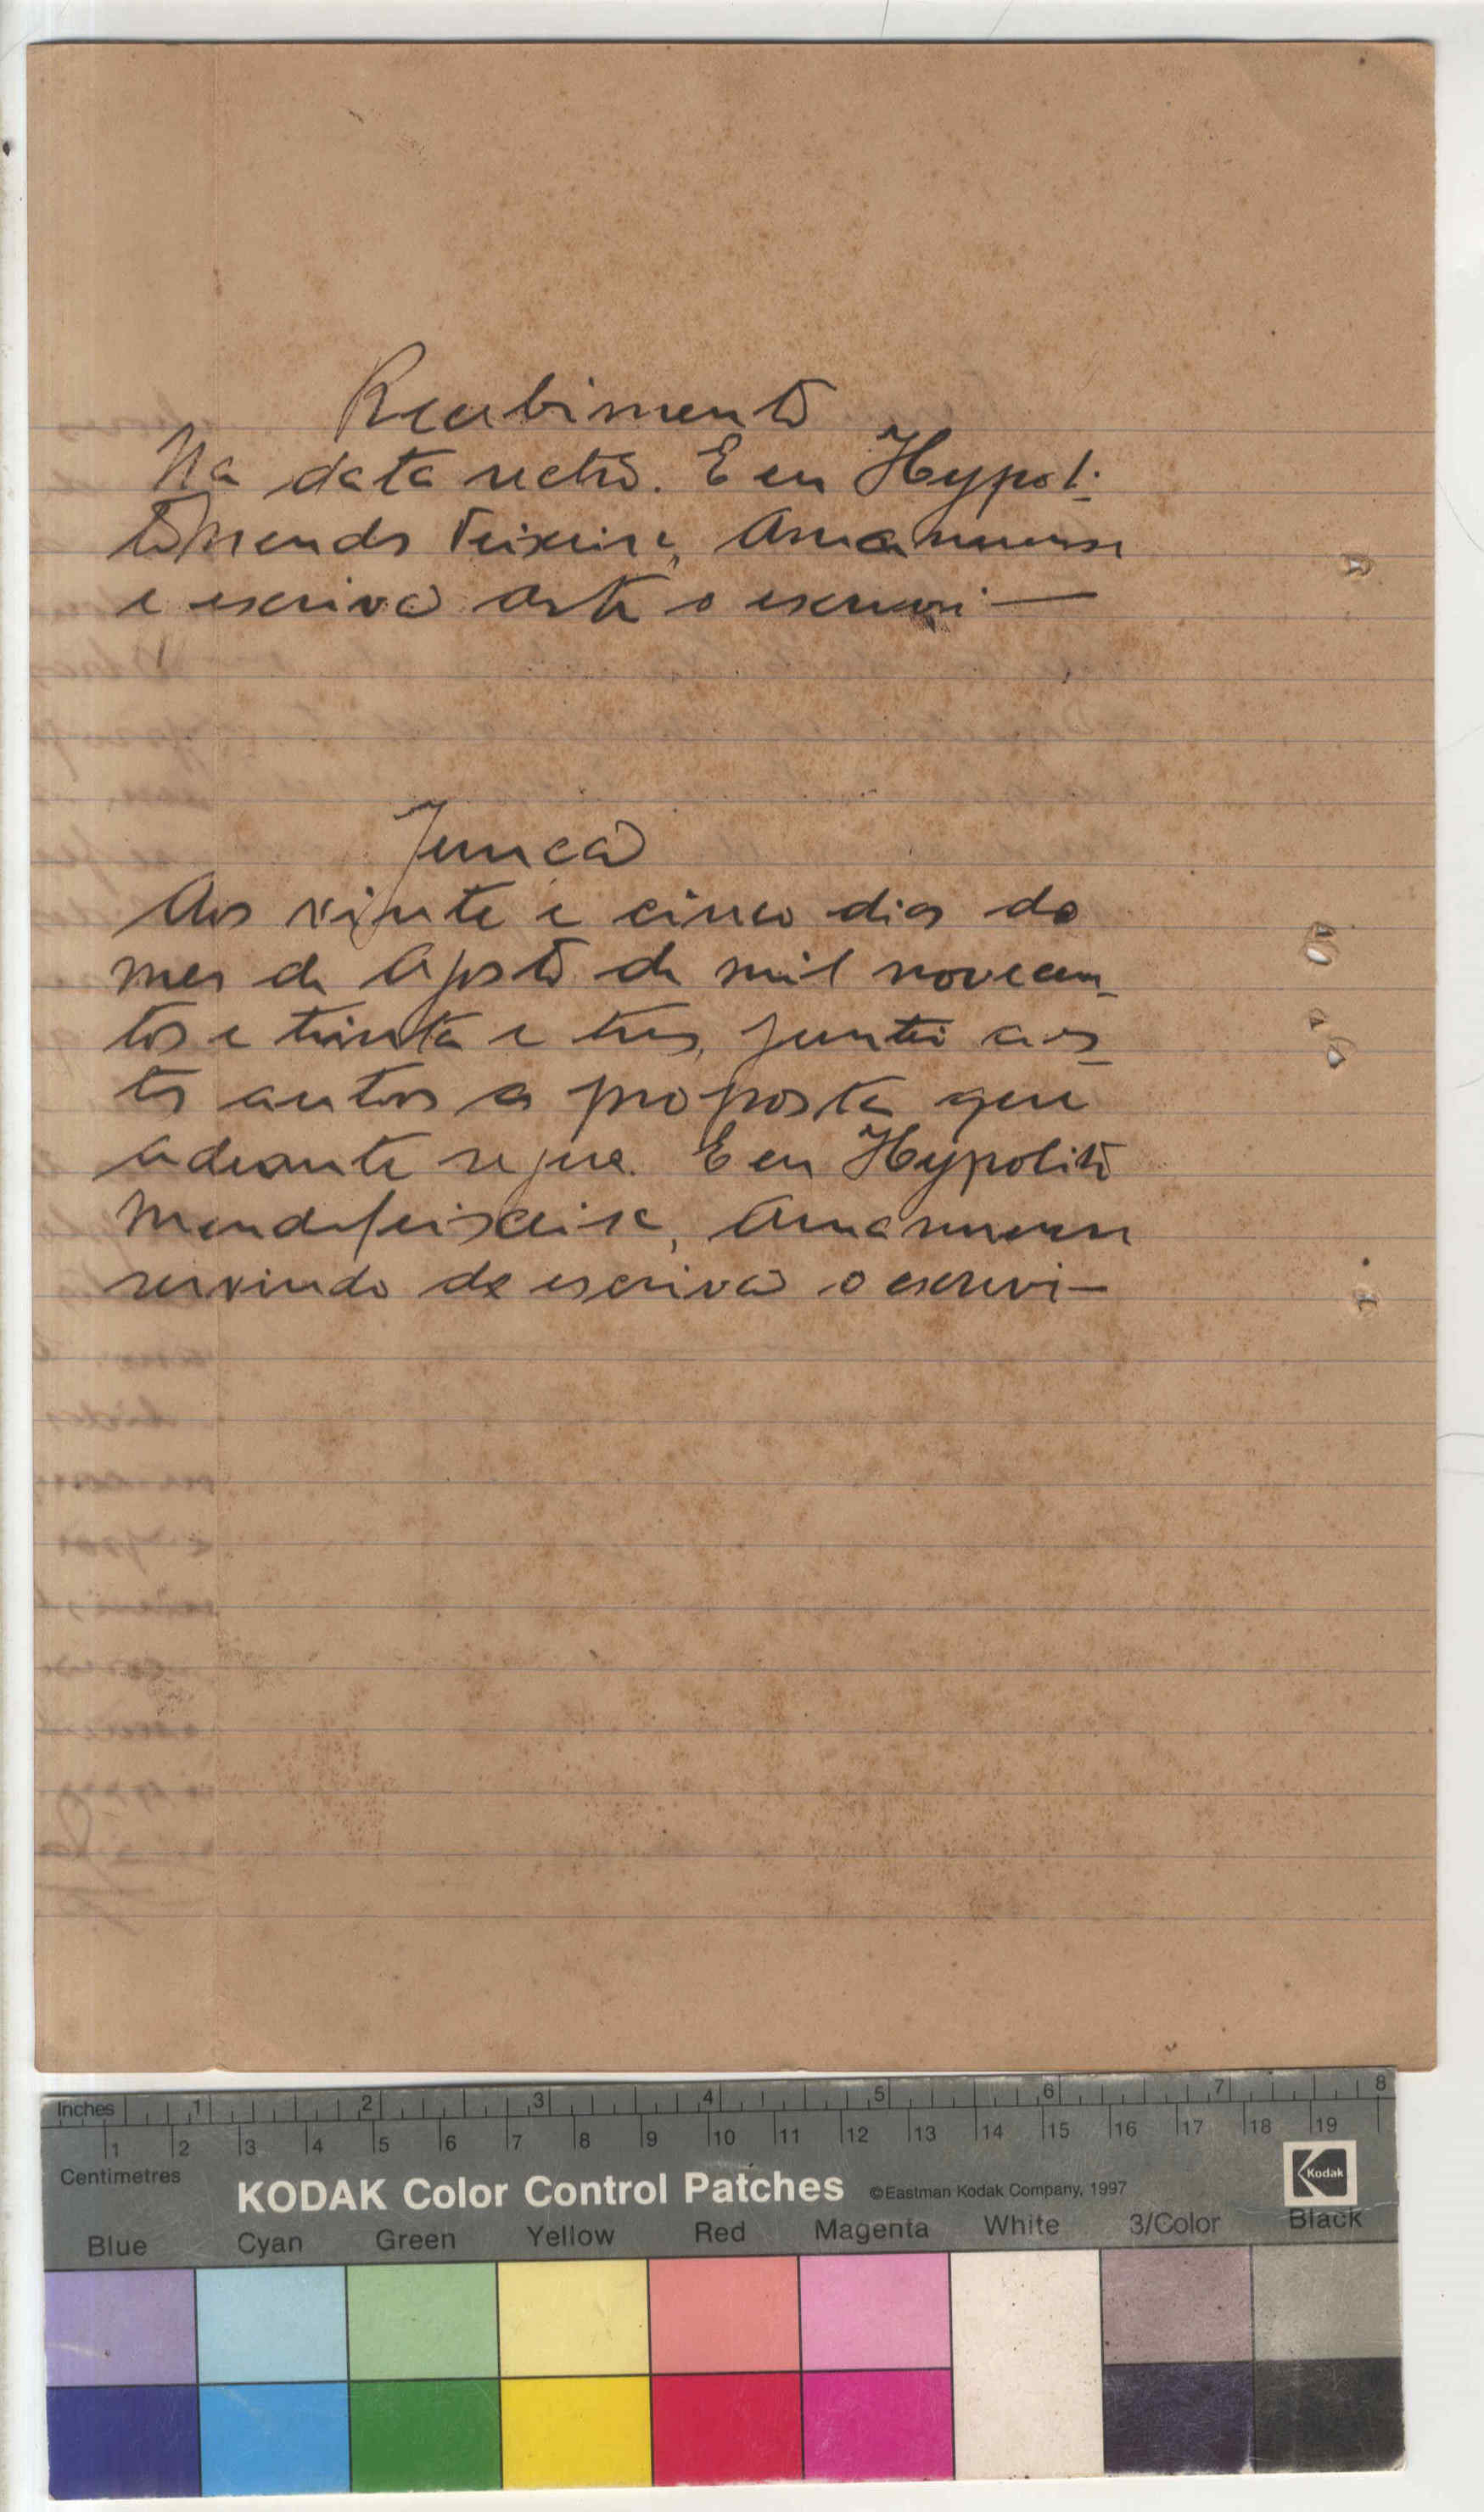 Recebimento
Na data retro. E eu Hypoli-
to Mendes Teixeira, Amanuense
e escrivão o escrevi —
Juncão
Aos vinte e cinco dias do
mes de Agosto de mil novecen-
tos e trinta e tres, juntei aos
autos a proposta que
adeante segue. E eu Hypolito
Mendes Teixeira, Amanuense
servindo de escrivão o escrevi —
Inches 1 2 3 4 5 6 7 8
1 2 3 4 5 6 7 8 9 10 11 12 13 14 15 16 17 18 19
Centimetres
KODAK Color Control Patches ©Eastman Kodak Company, 1997
Kodak
Blue Cyan Green Yellow Red Magenta White 3/Color Black